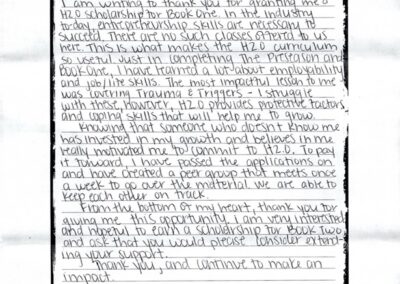 I am writing to thank you for granting me a
H2O scholarship for Book One. In the industry
today, entreprenuership skills are necessary to
succeed. There are no such classes offered to us
here. This is what makes the H2O curriculum
so useful. Just in completing the Preseason and
Book One, I have learned a lot about employability
and job/life skills. The most impactful lesson to me
was covering Trauma & Triggers. I struggle
with these, however, H2O provides protective factors
and coping skills that will help me to grow.
Knowing that someone who doesn't know me
has invested in my growth and believes in me
really motivated me to commit to H2O. To pay
it forward, I have passed the applications on
and have created a peer group that meets once
a week to go over the material. We are able to
keep each other on track.
From the bottom of my heart, thank you for
giving me this opportunity. I am very interested
and hopeful to earn a scholarship for Book Two,
and ask that you would please consider extend-
ing your support.
Thank you, and continue to make an
impact.